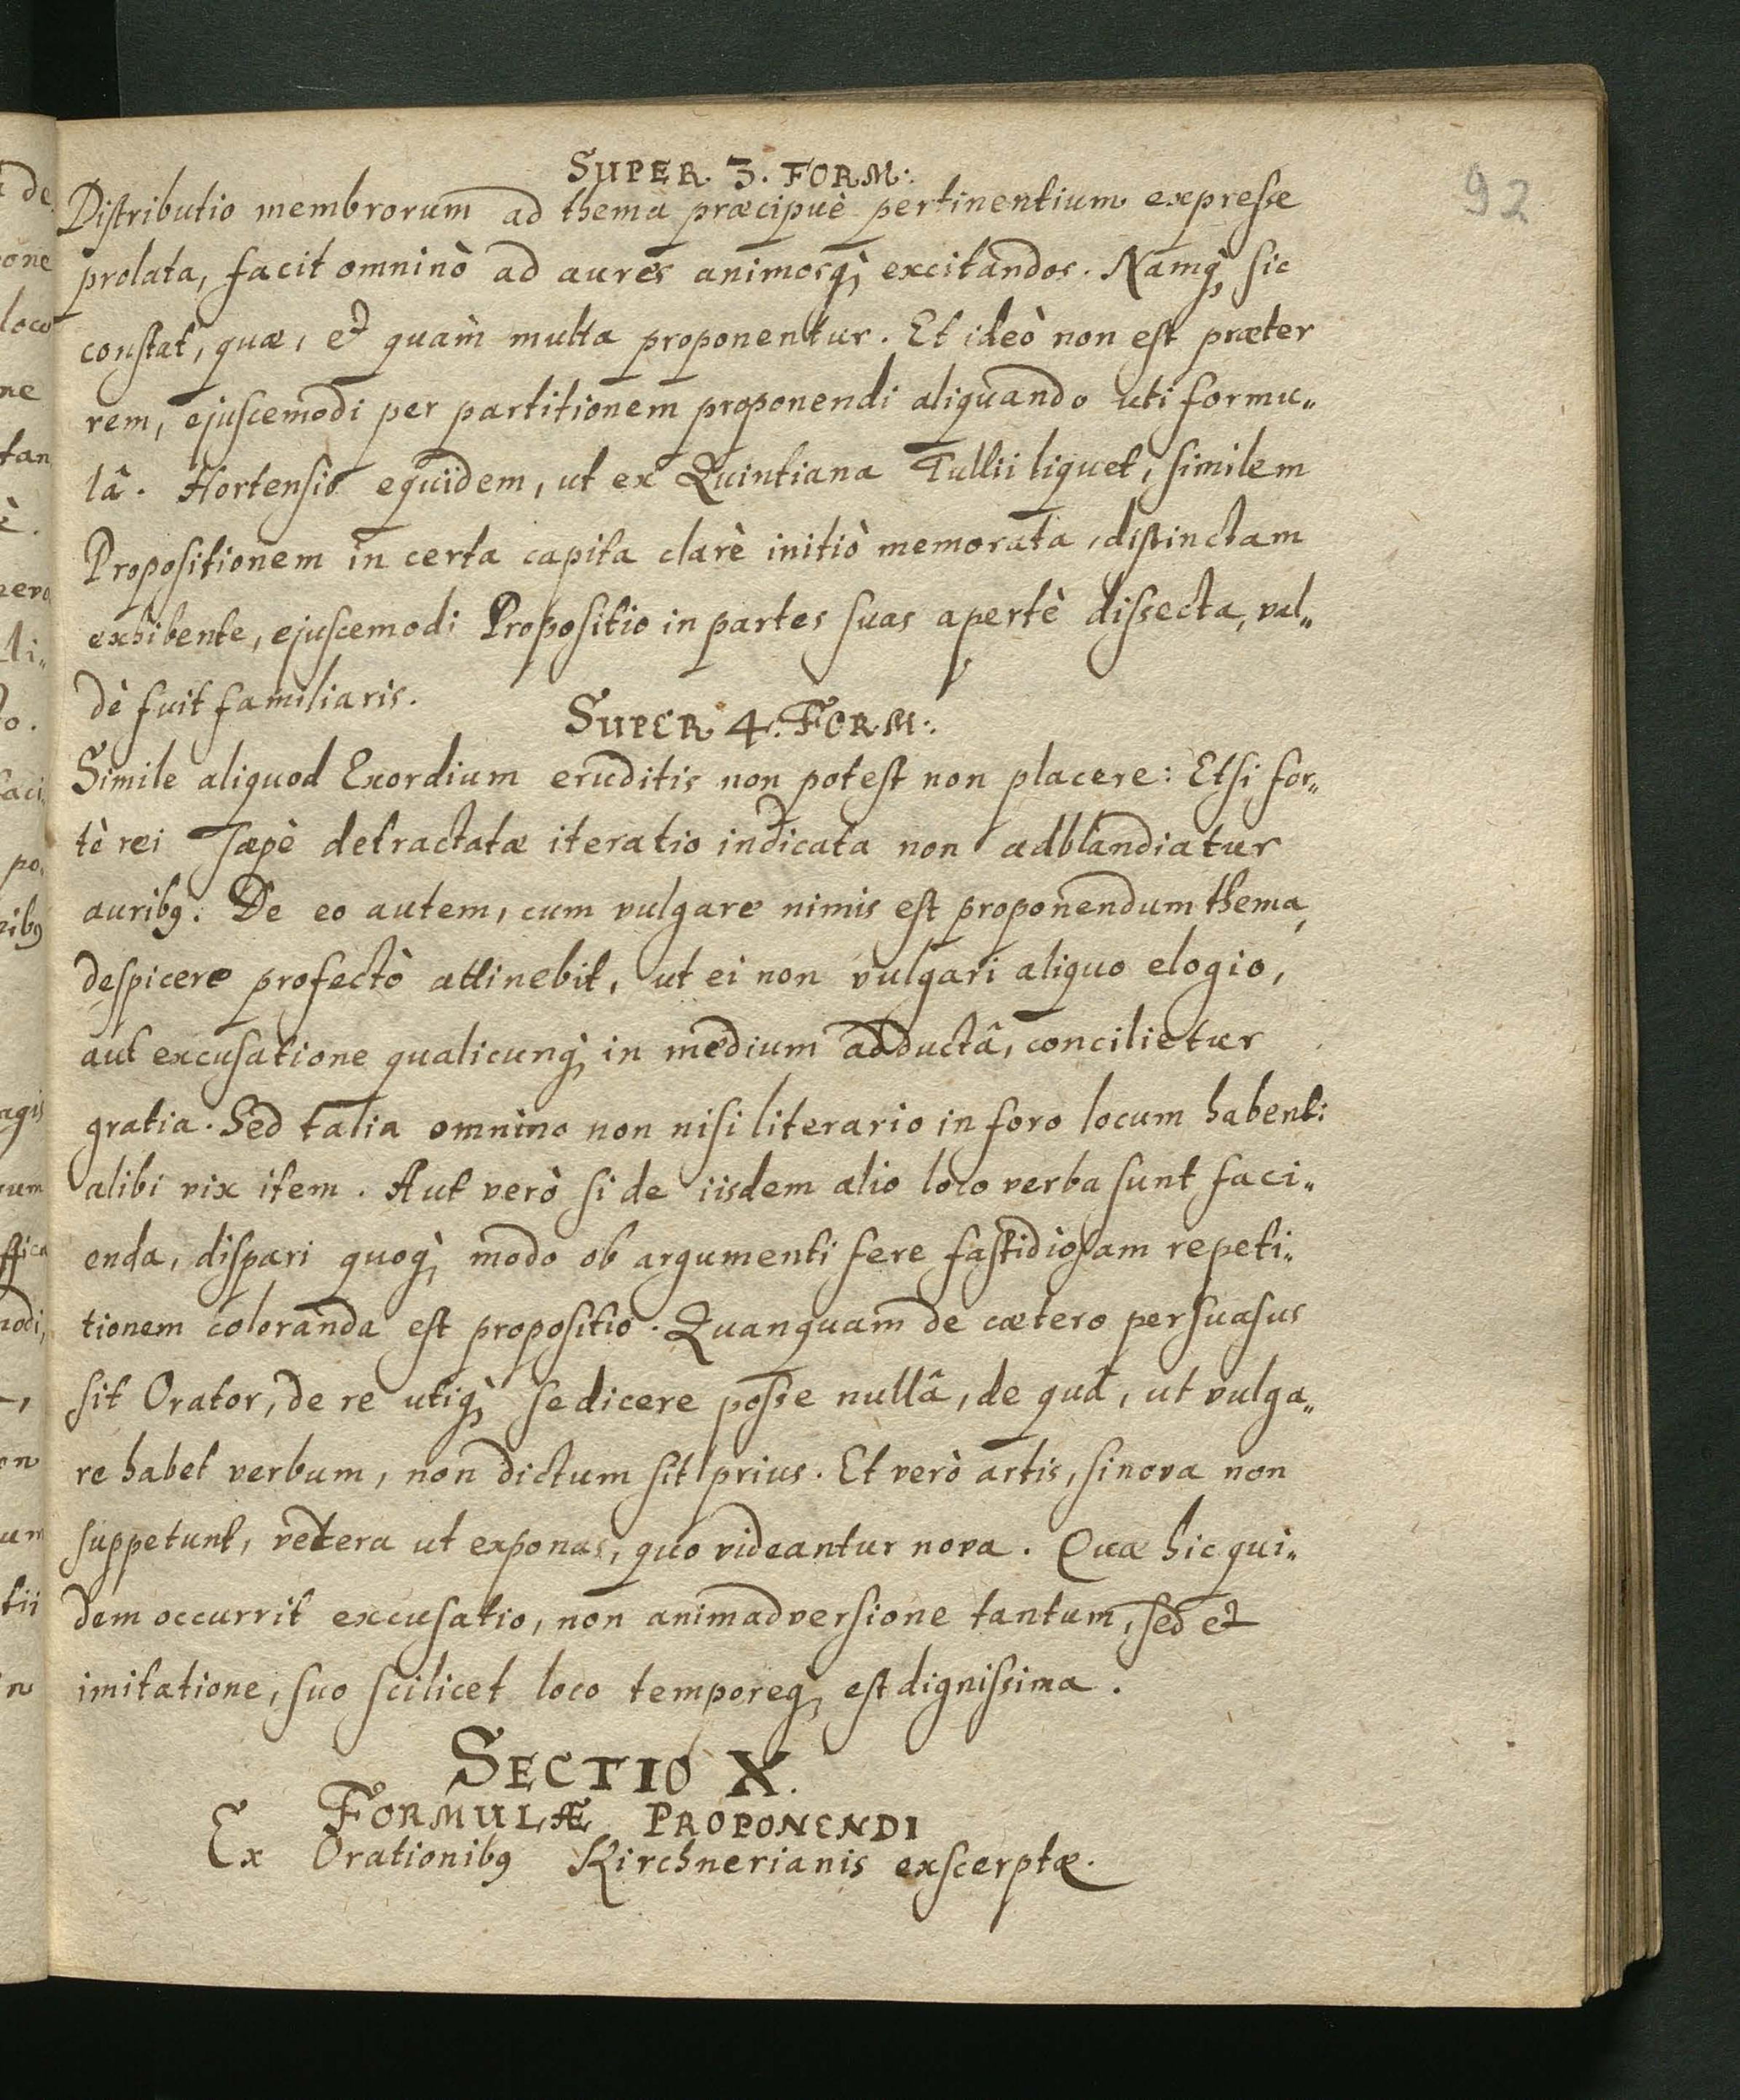 92
SUPER. 3. FORM:.
Distributio membrorum ad thema præcipuè pertinentium expresse
prolata, facit omninò ad aures animosq; excitandos. Namq; sic
constat, quæ, et quam̀ multa proponentur. Et ideò non est præter
rem, ejuscemodi per partitionem proponendi aliquando uti formu„
lâ. Hortensio equidem, ut ex Quintiana Tullii liquet, similem
Propositionem in certa capita clarè initiò memorata, distinctam
exhibente, ejuscemodi Propositio in partes suas apertè dissecta, val„
dè fuit familiaris.
SUPER. 4. FORM:.
Simile aliquod Exordium eruditis non potest non placere: Etsi for„
tè rei sæpè detractatæ iteratio indicata non adblandiatur
aurib9. De eo autem, cum vulgare nimis est proponendum thema,
despicere profectò attinebit, ut ei non vulgari aliquo elogio,
aut excusatione qualicunq; in medium adductâ, concilietur
gratia. Sed talia omnino non nisi literario in foro locum habent:
alibi vix item. Aut verò si de iisdem alio loco verba sunt faci„
enda, dispari quoq; modo ob argumenti fere fastidiosam repeti„
tionem coloranda est propositio. Quanquam de cætero persuasus
sit Orator, de re utiq; se dicere posse nullâ, de quâ, ut vulga„
re habet verbum, non dictum sit prius. Et verò artis, si nova non
suppetunt, vetera ut exponas, quo videantur nova. Quæ hic qui„
dem occurrit excusatio, non animadversione tantum, sed et
imitatione, suo scilicet loco temporeq; est dignissima.
SECTIO X.
FORMULÆ PROPONENDI
Ex Orationib9 Kirchnerianis exscerptæ.